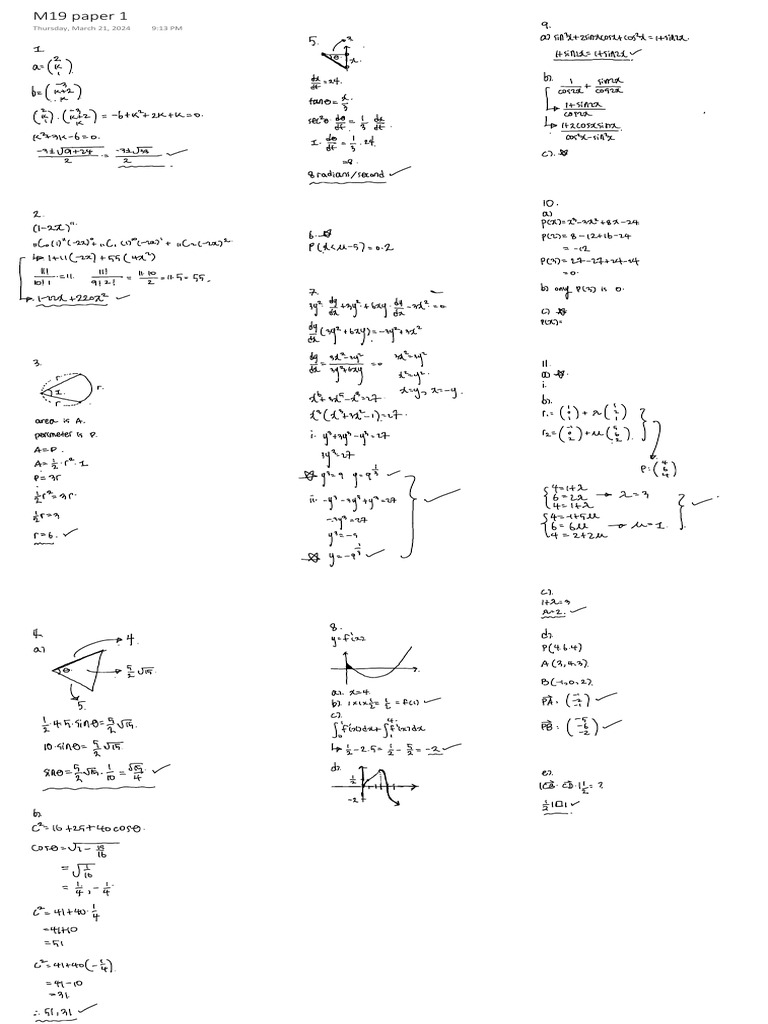 M19 paper 1
Thursday, March 21, 2024 9:13 PM
1.
a = (2 k 1)
b = (-3 k+2 k)
(2 k 1) · (-3 k+2 k) = -6+k²+2k+k=0.
k²+3k-6=0.
(-3±√(9+24))/2 = (-3±√33)/2 ✓
2.
(1-2x)¹¹
₁₁C₀(1)¹¹(-2x)⁰+ ₁₁C₁(1)¹⁰(-2x)¹ + ₁₁C₂(-2x)²
↳ 1+11(-2x)+55(4x²)
11!/10!1! = 11. 11!/9!2! = 11·10/2 = 11·5 = 55.
1-22x+220x² ✓
3.
r
1.
r
r.
area is A.
perimeter is P.
A=P.
A=½·r²·1
P=3r
½r²=3r.
½r=3
r=6. ✓
4.
a)
4.
θ
5/2 √15.
5.
½·4·5·sinθ=5/2 √15
10·sinθ=5/2 √15.
sinθ=5/2 √15·1/10=√15/4 ✓
b.
c²=16+25+40cosθ.
cosθ=√(1-15/16)
=√(1/16)
=1/4,-1/4.
c²=41+40·1/4
=41+10
=51
c²=41+40(-1/4)
=41-10
=31
∴51,31 ✓
5.
θ
x.
dx/dt=24.
tanθ=x/3
sec²θ·dθ/dt=1/3 dx/dt
1·dθ/dt=1/3·24.
=8.
8 radians/second ✓
6. ☆
P(x<μ-5)=0.2
7.
3y²·dy/dx+3y²+6xy·dy/dx-3x²=0
dy/dx(3y²+6xy)=-3y²+3x²
dy/dx=(3x²-3y²)/(3y²+6xy)=0
3x²=3y²
x²=y².
x=y, x=-y.
x³+3x³-x³=27
i. y³+3y³-y³=27
3y³=27
☆ y³=9 y=9^(1/3) ✓
ii. -y³-3y³+y³=27
-3y³=27
☆ y=-9^(1/3) ✓
8.
y=f'(x)
a). x=4.
b). 1×1×½=½=f(1) ✓
c).
∫₀¹f'(x)dx+∫₁⁴f'(x)dx
↳ ½-2.5=½-5/2=-2 ✓
d).
½
-2
9.
a) sin²x+2sinxcosx+cos²x=1+sin2x.
1+sin2x=1+sin2x ✓
b).
1/cos2x+sin2x/cos2x
(1+sin2x)/cos2x
(1+2cosxsinx)/(cos²x-sin²x)
c). ☆
10.
a)
P(x)=x³-3x²+8x-24
P(2)=8-12+16-24
=-12
P(3)=27-27+24-24
=0.
b) only P(3) is 0.
c) ☆
P(x)=
11.
a) ☆.
i.
b).
P:(4 6 4)
4=1+λ
6=2λ → λ=3
4=1+λ
4=-1+5μ
6=6μ → μ=1. ✓
4=2+2μ
c).
1+λ=3
λ=2. ✓
d).
P(4.6.4)
A(3,4,3)
B(-1,0,2).
PA:(-1 -2 -1) ✓
PB:(-5 -6 -2) ✓
e).
½|□| ✓